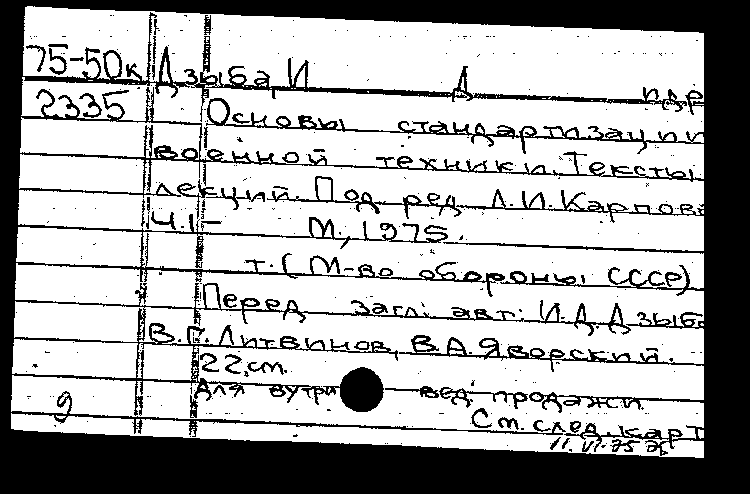 75-50к Дзыба, И Д и др
2335 Основы стандартизации
военной техники. Тексты
лекций. Под ред. Л.И. Карпова
Ч.1- М., 1975.
т. (М-во обороны СССР)
Перед загл. авт: И.Д. Дзыба
В.Г. Литвинов, В.А. Яворский.
22 см.
Для внутри вед. продажи
9 См. след. карт
11.VI-75